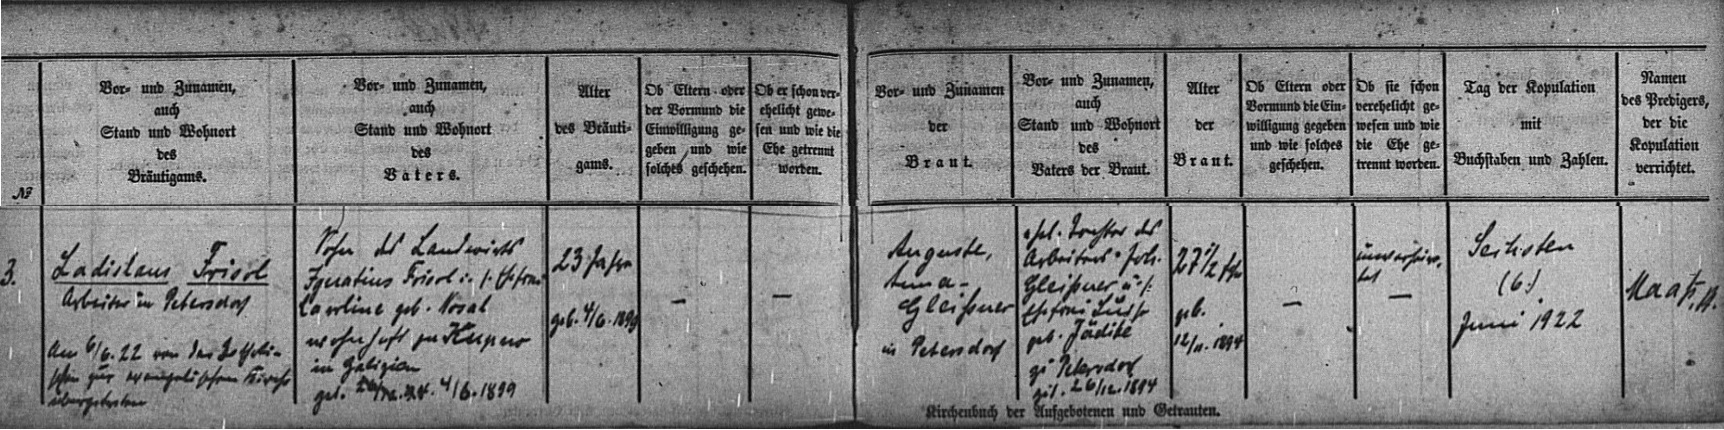 №
Vor- und Zunamen,
auch
Stand und Wohnort
des
Bräutigams.
Vor- und Zunamen,
auch
Stand und Wohnort
des
Vaters.
Alter
des Bräuti-
gams.
Ob Eltern oder
der Vormund die
Einwilligung ge-
geben und wie
solches geschehen.
Ob er schon ver-
ehelicht gewe-
sen und wie die
Ehe getrennt
worden.
Vor- und Zunamen
der
Braut.
Vor- und Zunamen,
auch
Stand und Wohnort
des
Vaters der Braut.
Alter
der
Braut.
Ob Eltern oder
Vormund die Ein-
willigung gegeben
und wie solches
geschehen.
Ob sie schon
verehelicht ge-
wesen und wie
die Ehe ge-
trennt worden.
Tag der Kopulation
mit
Buchstaben und Zahlen.
Namen
des Predigers,
der die
Kopulation
verrichtet.
3.
Ladislaus Frisol
Arbeiter in Petersdorf
Am 6/6. 22 von der katholi-
schen zur evangelischen Kirche
übergetreten
Sohn des Landwirts
Ignatius Frisol u. s. Ehefrau
Caroline geb. Nosal
wohnhaft zu
in Galizien
geb. 4/6. 1899
23 Jahre
geb. 4/6. 1899
—
—
Auguste,
Anna
Gleißner
in Petersdorf
ehel. Tochter des
Arbeiters Joh.
Gleißner u. s.
Ehefrau
geb. Jädike
zu Petersdorf
get. 26/12. 1894
27 1/2 Jhr
geb.
12/11. 1894
—
unverheira-
tet
—
Sechsten
(6.)
Juni 1922
Maaß, P.
Kirchenbuch der Aufgebotenen und Getrauten.